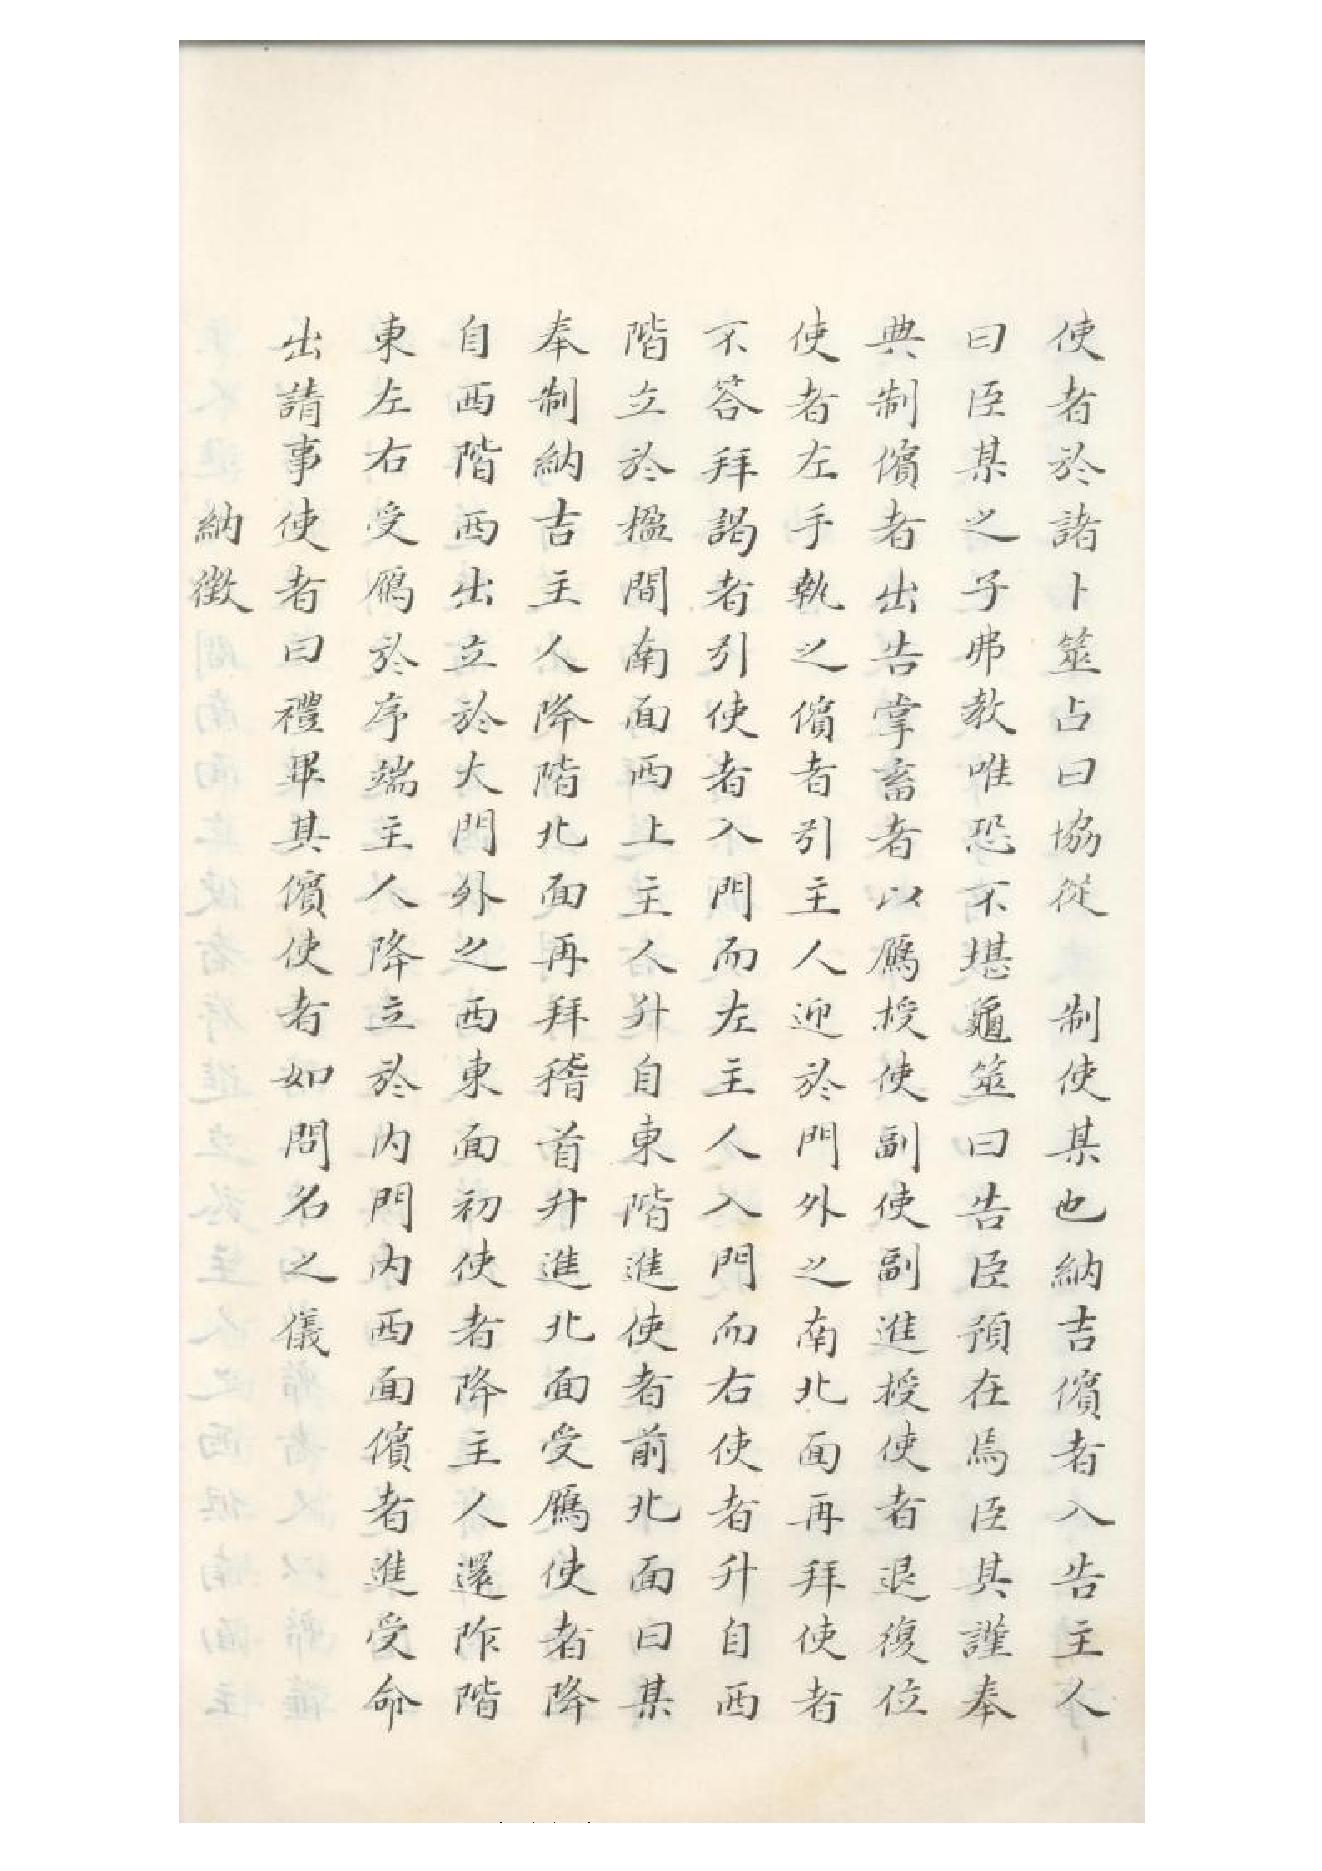 使者於諸卜筮占曰協從　制使某也納吉儐者入告主人
曰臣某之子弗教唯恐不堪龜筮曰告臣預在焉臣其謹奉
典制儐者出告掌畜者以鴈授使副使副進授使者退復位
使者左手執之儐者引主人迎於門外之南北面再拜使者
不答拜謁者引使者入門而左主人入門而右使者升自西
階立於楹間南面西上主人升自東階進使者前北面曰某
奉制納吉主人降階北面再拜稽首升進北面受鴈使者降
自西階西出立於大門外之西東面初使者降主人還阼階
東左右受鴈於序端主人降立於內門內西面儐者進受命
出請事使者曰禮畢其儐使者如問名之儀
納徵